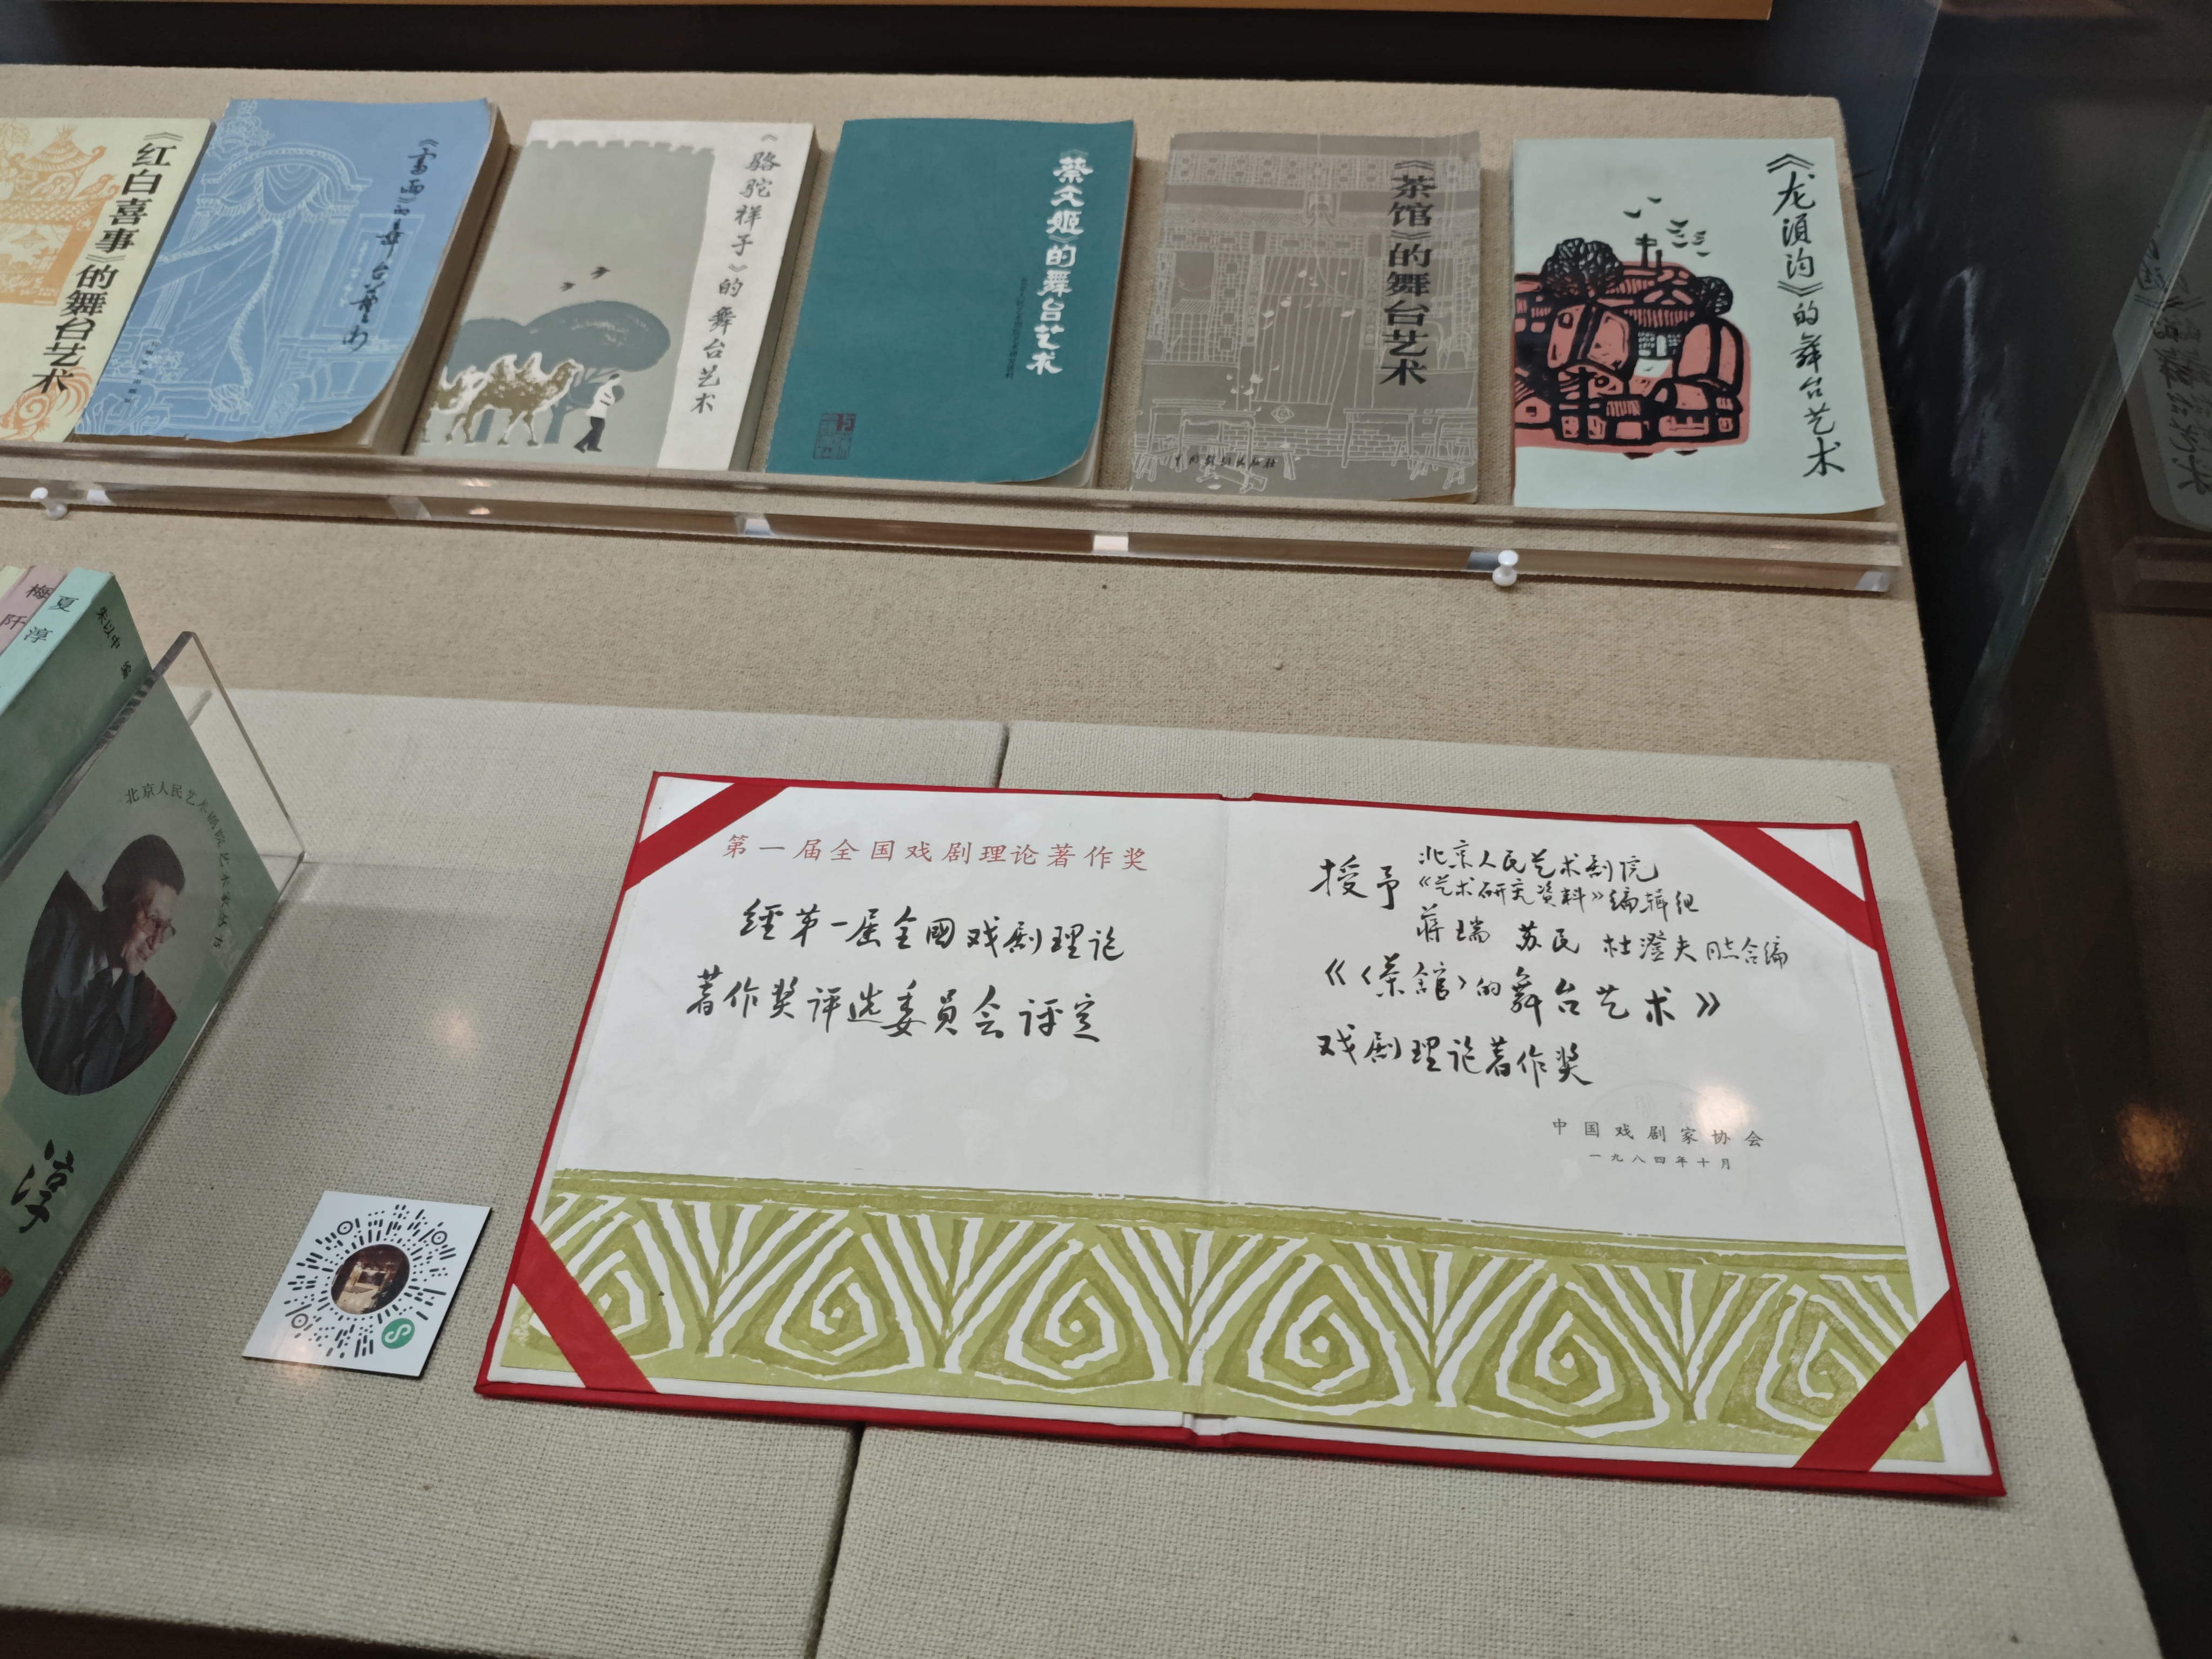 《红白喜事》的舞台艺术
《雷雨》的舞台艺术
《骆驼祥子》的舞台艺术
《蔡文姬》的舞台艺术
《茶馆》的舞台艺术
中国戏剧出版社
《龙须沟》的舞台艺术
梅阡
夏淳
北京人民艺术剧院艺术家丛书
淳
第一届全国戏剧理论著作奖
经第一届全國戏剧理论
著作奖评选委員会评定
授予 北京人民艺术剧院
《艺术研究资料》编辑组
蒋瑞 苏民 杜澄夫同志合编
《〈茶館〉的舞台艺术》
戏剧理论著作奖
中国戏剧家协会
一九八四年十月